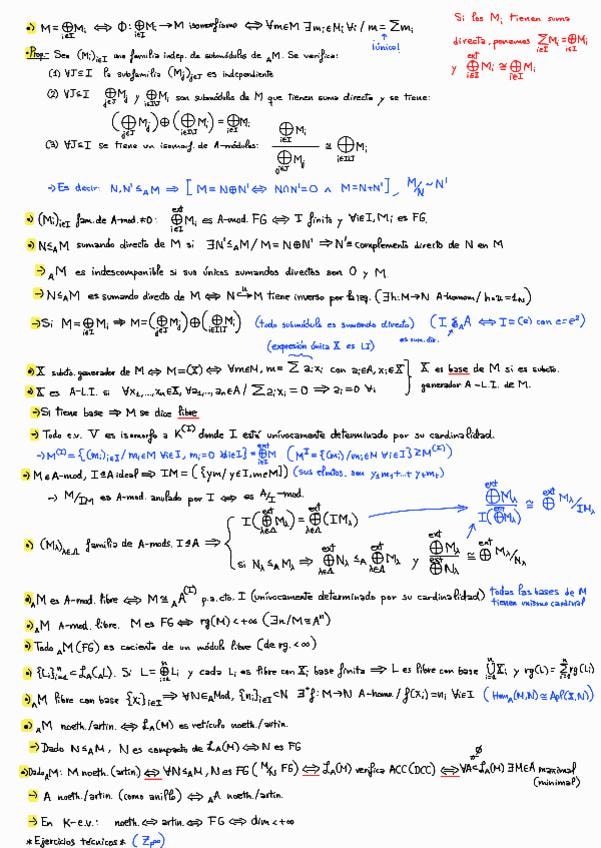 •) M = ⊕_{i∈I} M_i ⟺ Φ: ⊕^{ext}_{i∈I} M_i → M isomorfismo ⟺ ∀m∈M ∃m_i∈M_i ∀i / m = Σ m_i
↑ ¡único!
Si los M_i tienen suma
directa, ponemos Σ_{i∈I} M_i = ⊕_{i∈I} M_i
y ⊕^{ext}_{i∈I} M_i ≅ ⊕_{i∈I} M_i
•Prop.- Sea (M_i)_{i∈I} una familia indep. de submódulos de _AM. Se verifica:
(1) ∀J⊆I la subfamilia (M_j)_{j∈J} es independiente
(2) ∀J⊆I ⊕_{j∈J} M_j y ⊕_{i∈I\J} M_i son submódulos de M que tienen suma directa y se tiene:
(⊕_{j∈J} M_j) ⊕ (⊕_{i∈I\J} M_i) = ⊕_{i∈I} M_i
(3) ∀J⊆I se tiene un isomorf. de A-módulos: ⊕_{i∈I} M_i / ⊕_{j∈J} M_j ≅ ⊕_{i∈I\J} M_i
→ Es decir: N, N' ≤ _AM ⇒ [ M = N⊕N' ⟺ N∩N' = 0 ∧ M = N+N' ], M/N ~ N'
•) (M_i)_{i∈I} fam. de A-mod. ≠0: ⊕^{ext}_{i∈I} M_i es A-mod. FG ⟺ I finito y ∀i∈I, M_i es FG.
•) N ≤ _AM sumando directo de M si ∃N' ≤ _AM / M = N⊕N' ⇒ N' = complemento directo de N en M
→ _AM es indescomponible si sus únicos sumandos directos son 0 y M.
→ N ≤ _AM es sumando directo de M ⟺ N ↪^u M tiene inverso por la izq. (∃h: M→N A-homom / h∘u = 1_N)
→ Si M = ⊕_{i∈I} M_i ⇒ M = (⊕_{j∈J} M_j) ⊕ (⊕_{i∈I\J} M_i) (todo submódulo es sumando directo) (I ≤ _AA ⟺ I = (e) con e = e²)
es sum. dir.
(expresión única X es LI)
•) X subcto. generador de M ⟺ M = (X) ⟺ ∀m∈M, m = Σ a_i x_i con a_i∈A, x_i∈X } X es base de M si es subcto.
•) X es A-L.I. si ∀x_1,...,x_n∈X, ∀a_1,..., a_n∈A / Σ a_i x_i = 0 ⇒ a_i = 0 ∀i } generador A-L.I. de M.
→ Si tiene base ⇒ M se dice libre
→ Todo e.v. V es isomorfo a K^{(I)} donde I está unívocamente determinado por su cardinalidad.
→ M^{(I)} = {(m_i)_{i∈I} / m_i∈M ∀i∈I, m_i = 0 ∀i∈I} = ⊕^{ext}_{i∈I} M (M^I = {(m_i) / m_i∈M ∀i∈I} ≥ M^{(I)})
•) M∈A-mod, I⊴A ideal ⇒ IM = ({ym / y∈I, m∈M}) (sus elmtos. son y_1m_1+...+y_tm_t)
→ M/IM es A-mod. anulado por I ⟺ es A/I-mod.
•) (M_λ)_{λ∈Λ} familia de A-mods. I⊴A ⇒ { I(⊕^{ext}_{λ∈Λ} M_λ) = ⊕^{ext}_{λ∈Λ} (IM_λ) → ⊕^{ext} M_λ / I(⊕^{ext} M_λ) ≅ ⊕^{ext} M_λ/IM_λ
si N_λ ≤ _AM_λ ⇒ ⊕^{ext}_{λ∈Λ} N_λ ≤ _A ⊕^{ext}_{λ∈Λ} M_λ y ⊕^{ext} M_λ / ⊕^{ext} N_λ ≅ ⊕^{ext} M_λ/N_λ
•) _AM es A-mod. libre ⟺ M ≅ _AA^{(I)} p.a. cto. I (unívocamente determinado por su cardinalidad) todas las bases de M
tienen mismo cardinal
•) _AM A-mod. libre. M es FG ⟺ rg(M) < +∞ (∃n / M ≅ A^n)
•) Todo _AM (FG) es cociente de un módulo libre (de rg. < ∞)
•) {L_i}_{i=1}^n ⊂ 𝓛_A(_AL). Si L = ⊕_{i=1}^n L_i y cada L_i es libre con X_i base finita ⇒ L es libre con base ⋃X_i y rg(L) = Σ_{i=1}^n rg(L_i)
•) _AM libre con base {x_i}_{i∈I} ⇒ ∀N∈_AMod, {n_i}_{i∈I} ⊂ N ∃¹f: M→N A-homo. / f(x_i) = n_i ∀i∈I (Hom_A(M,N) ≅ Apl(X,N))
•) _AM noeth./artin. ⟺ 𝓛_A(M) es retículo noeth./artin.
→ Dado N ≤ _AM, N es compacto de 𝓛_A(M) ⟺ N es FG
•) Dado _AM: M noeth. (artin) ⟺ ∀N ≤ _AM, N es FG (M/N FG) ⟺ 𝓛_A(M) verifica ACC (DCC) ⟺ ∀∅≠A⊂𝓛_A(M) ∃M∈A maximal
(minimal)
→ A noeth./artin. (como anillo) ⟺ _AA noeth./artin.
→ En K-e.v.: noeth. ⟺ artin. ⟺ FG ⟺ dim < +∞
*Ejercicios técnicos* (Z_{p^∞})